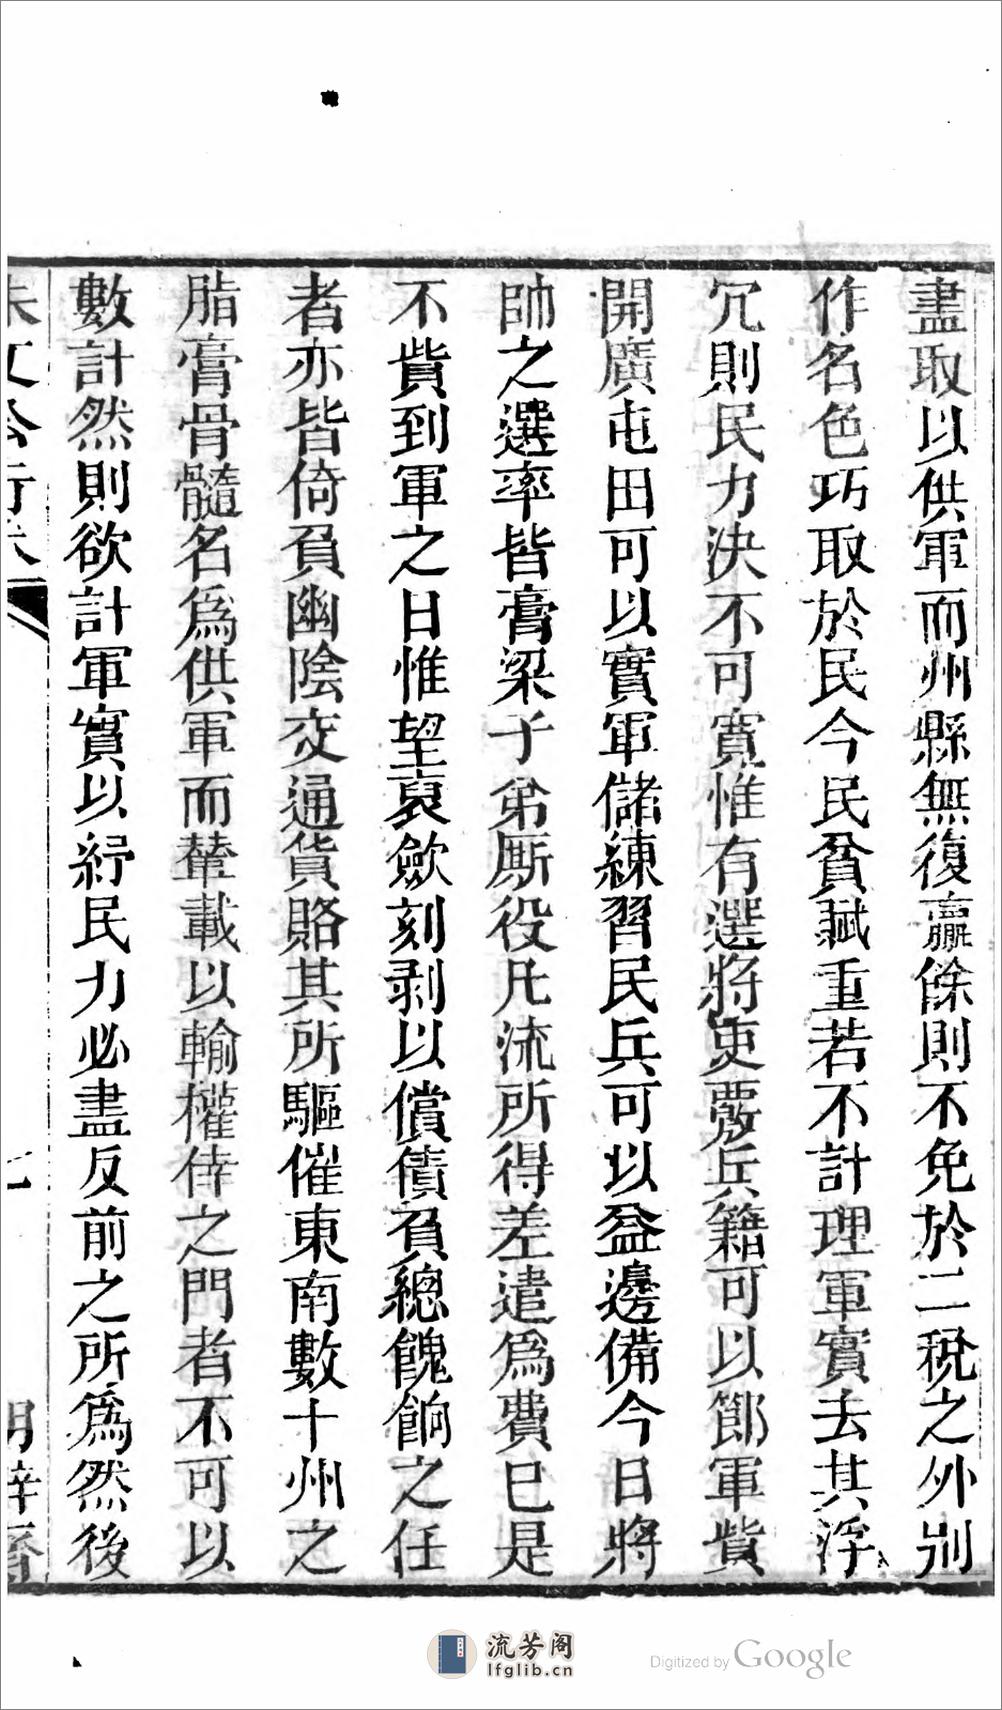 盡取以供軍而州縣無復贏餘則不免於二稅之外別
作名色巧取於民今民貧賦重若不計理軍實去其浮
冗則民力決不可寬惟有選將吏覈兵籍可以節軍貲
開廣屯田可以實軍儲練習民兵可以益邊備今日將
帥之選率皆膏梁子弟厮役凡流所得差遣為費已是
不貲到軍之日惟望裒歛刻剥以償債負總餽餉之任
者亦皆倚負幽陰交通貨賂其所驅催東南數十州之
脂膏骨髓名為供軍而輦載以輸權倖之門者不可以
數計然則欲計軍實以紓民力必盡反前之所為然後
朱文公行狀
七
流芳阁
lfglib.cn
Digitized by Google